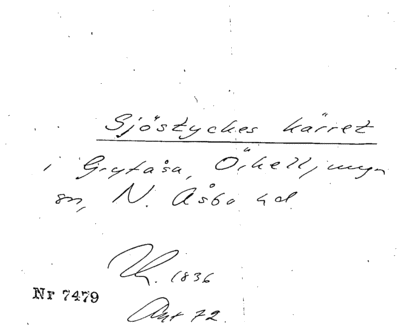 Sjöstyckes kärret
i Grytåsa, Örkelljunga
sn, N. Åsbo hd.
Th. 1836
Nr 7479
Ant 72.